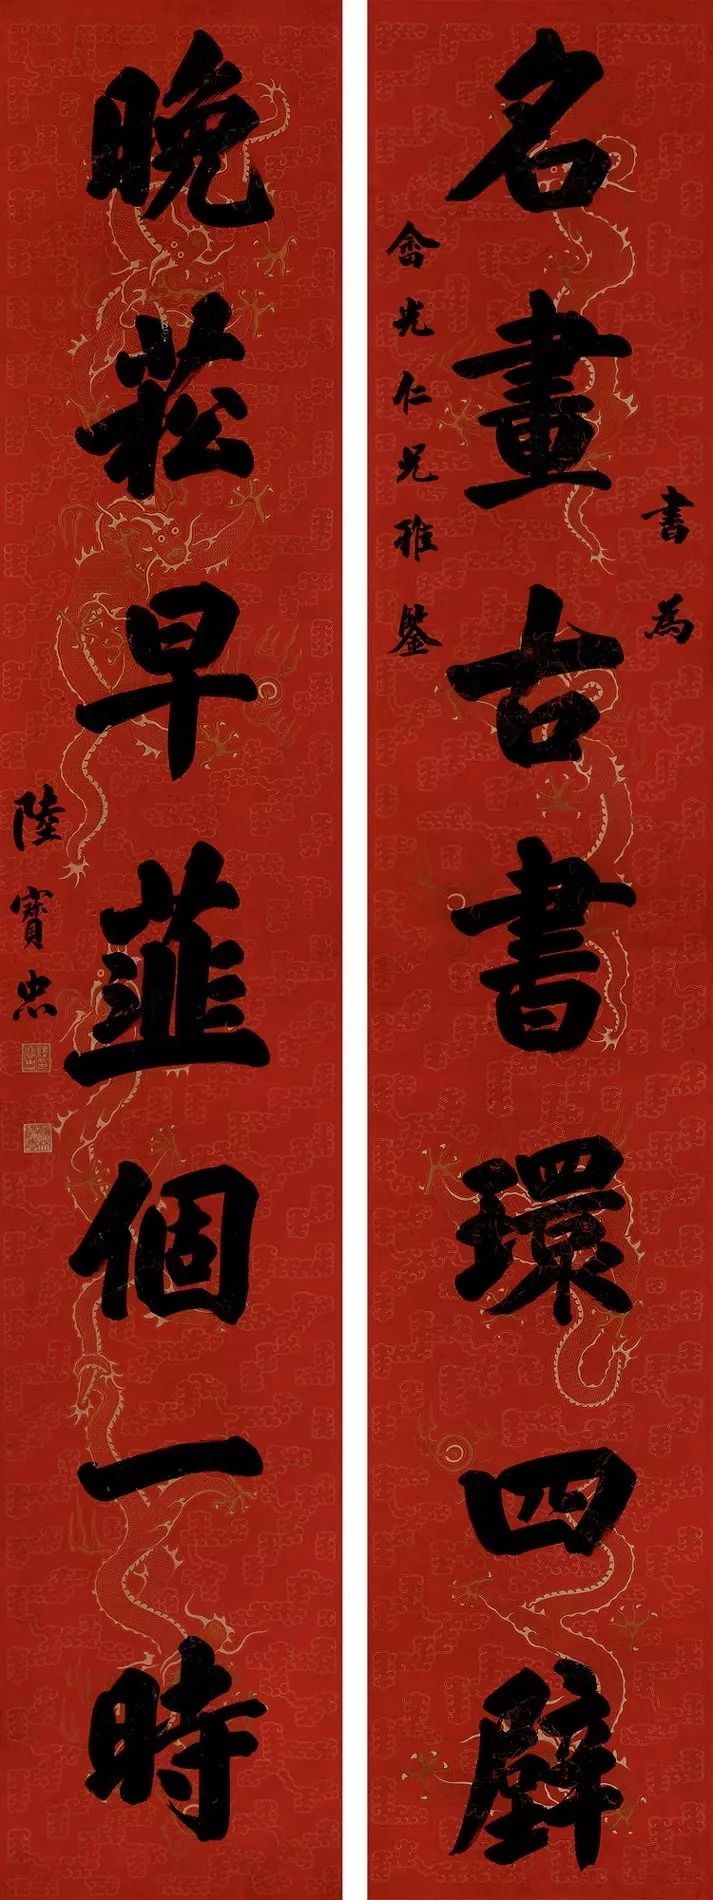 名畫古書環四壁
書為
畬光仁兄雅鑒
晚菘早韮個一時
陸寶忠